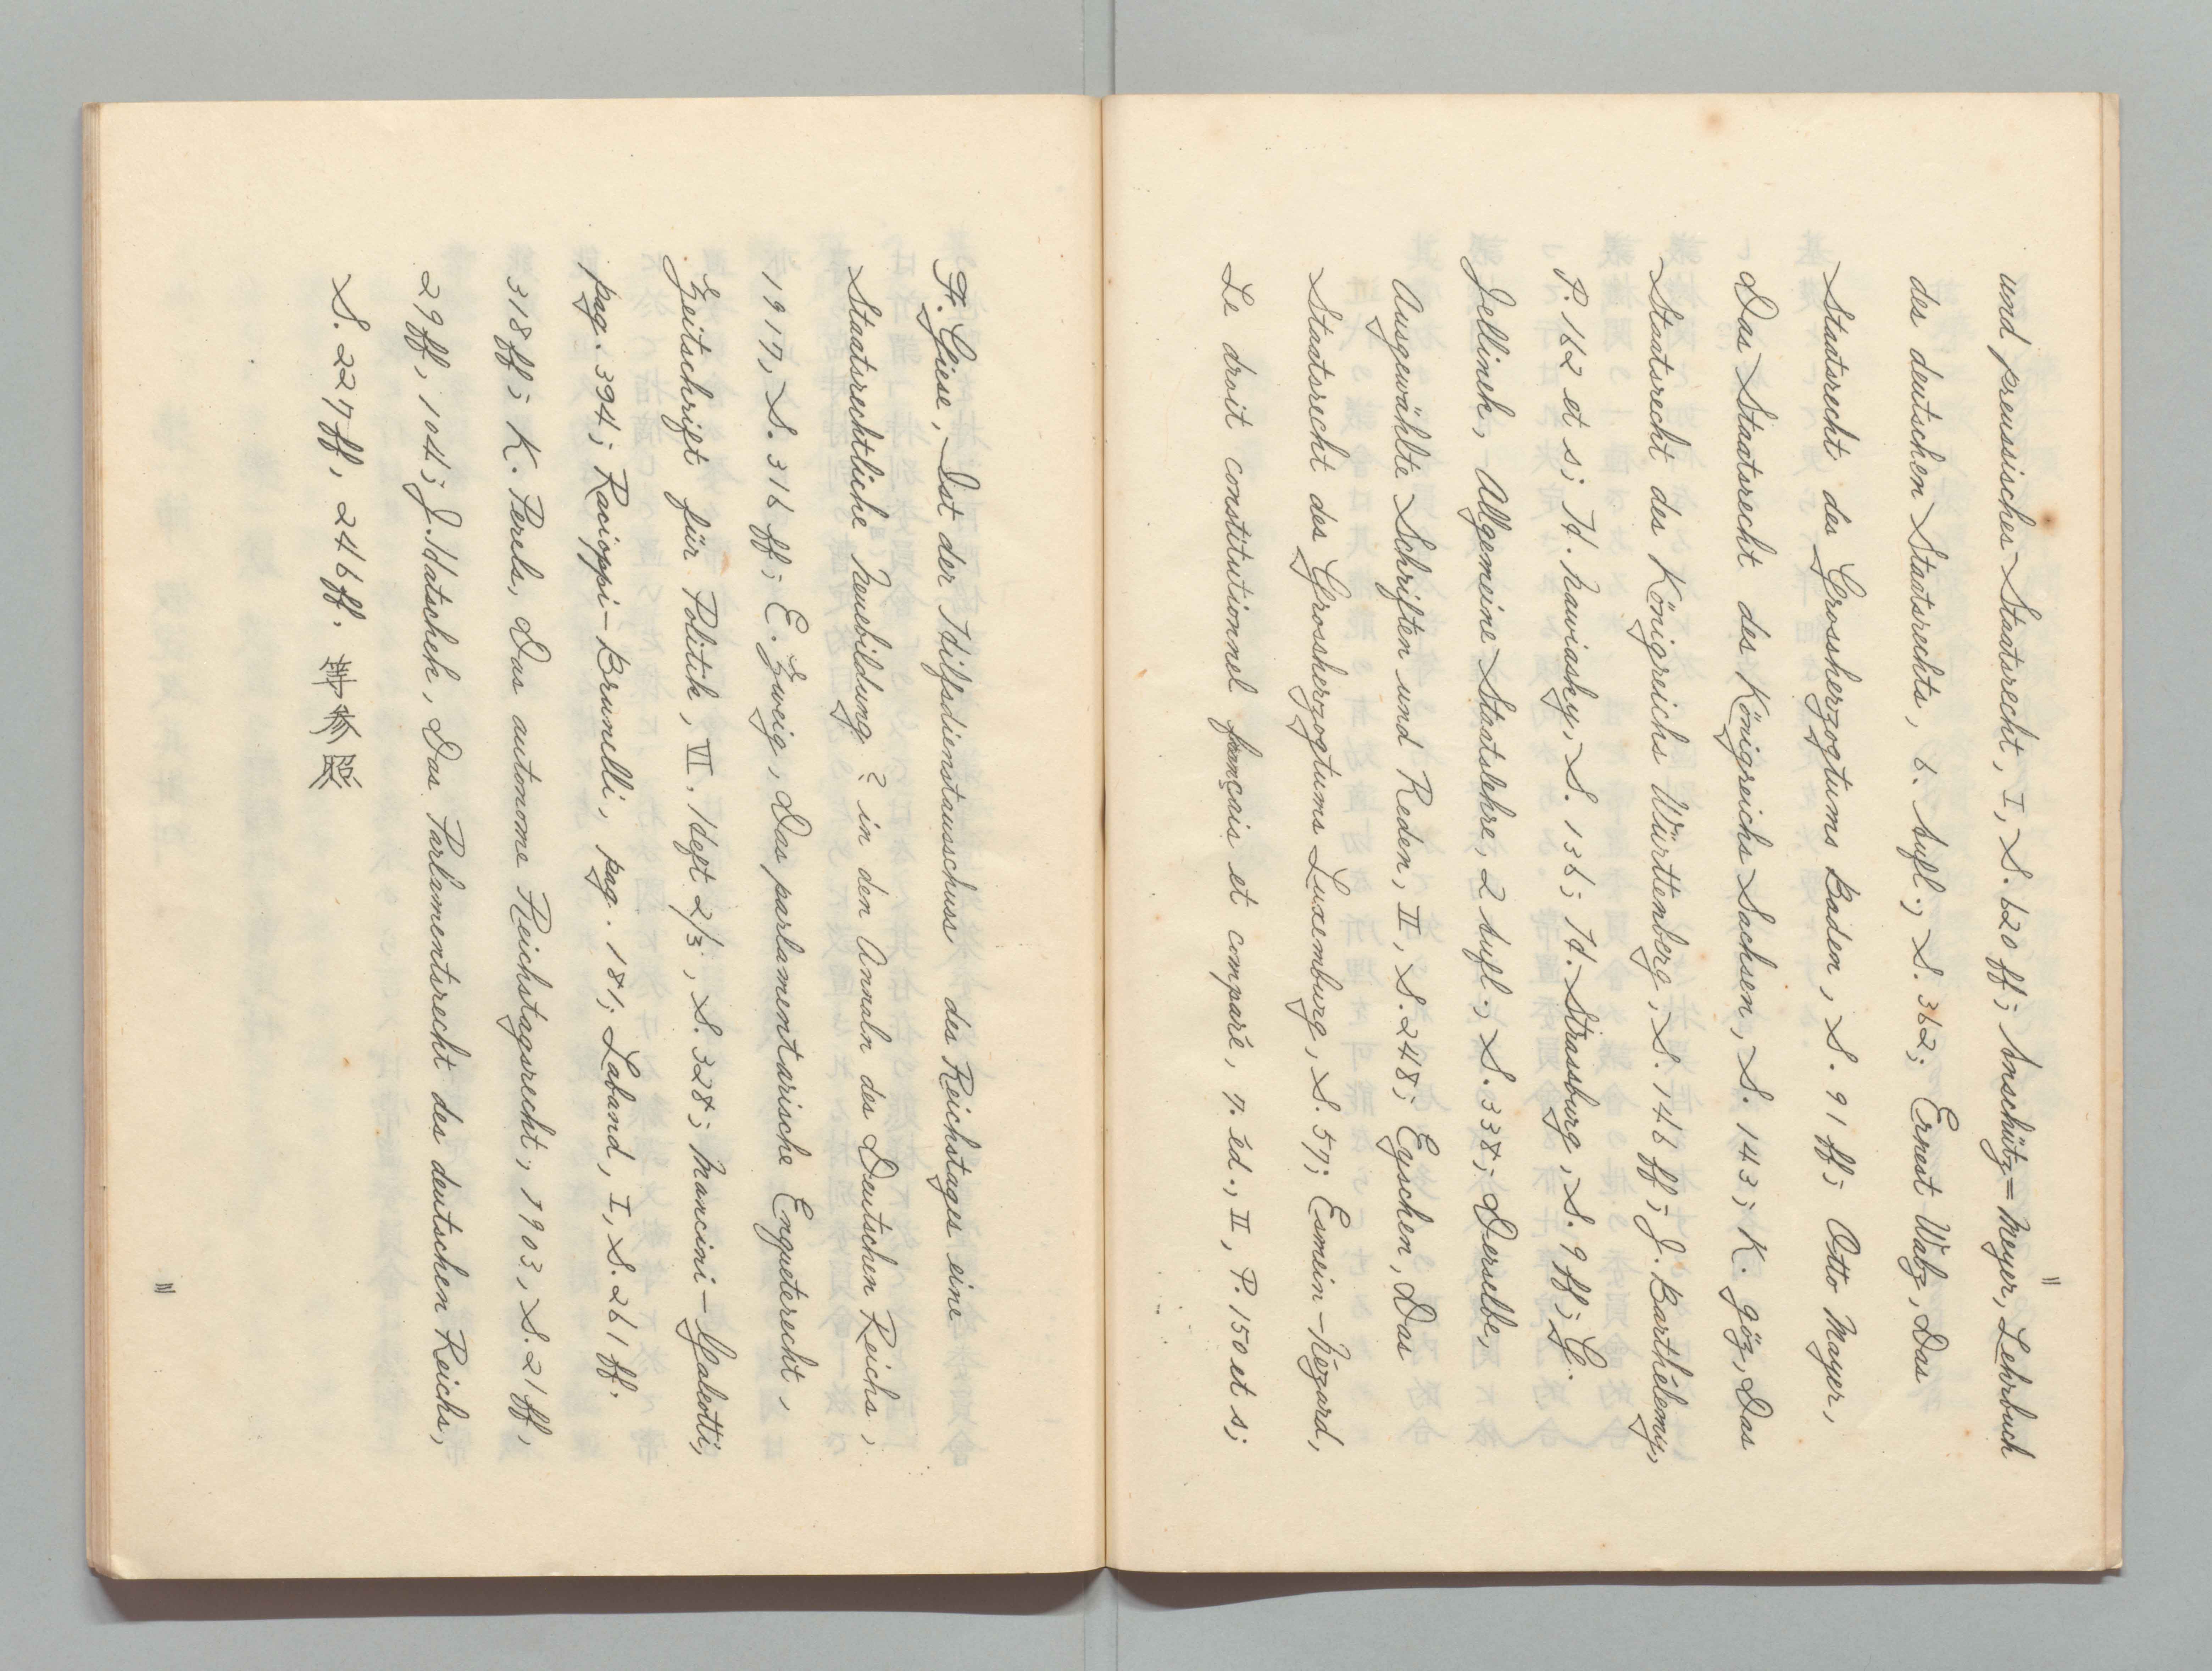 und preussisches Staatsrecht, I, S. 620 ff; Anschütz=Meyer, Lehrbuch
des deutschen Staatsrechts, 6. Aufl., S. 362; Ernest Walz, Das
Staatsrecht des Grossherzogtums Baden, S. 91 ff; Otto Mayer,
Das Staatsrecht des Königreichs Sachsen, S. 143; K. Göz, Das
Staatsrecht des Königreichs Württenberg, S. 146 ff; J. Barthélemy,
P. 162 et s; H. Nawiasky, S. 136; H. Strassburg, S. 9 ff; G.
Jellinek, Allgemeine Staatslehre, 2 Aufl., S. 338; Derselbe,
Ausgewählte Schriften und Reden, II, S. 248; Eyschen, Das
Staatsrecht des Grossherzogtums Luxemburg, S. 57; Esmein-Nézard,
Le droit constitutionnel français et comparé, 7. éd., II, P. 150 et s;
F. Giese, Ist der Hilfsdienstausschuss des Reichstages eine
Staatsrechtliche Neuebildung? in den Annaln des Deutschen Reichs,
1917, S. 316 ff; E. Zweig, Das parlamentarische Enqueterecht,
Zeitschrift für Politik, VI. Heft 2/3, S. 328; Mancini-Galeotti,
pag. 394; Racioppi-Brunelli, pag. 181; Laband, I, S. 261 ff.
318 ff; K. Perels, Das automome Reichstagsrecht, 1903, S. 21 ff,
29 ff, 104; J. Hatschek, Das Parlamentsrecht des deutschen Reichs,
S. 227 ff, 246 ff. 等參照